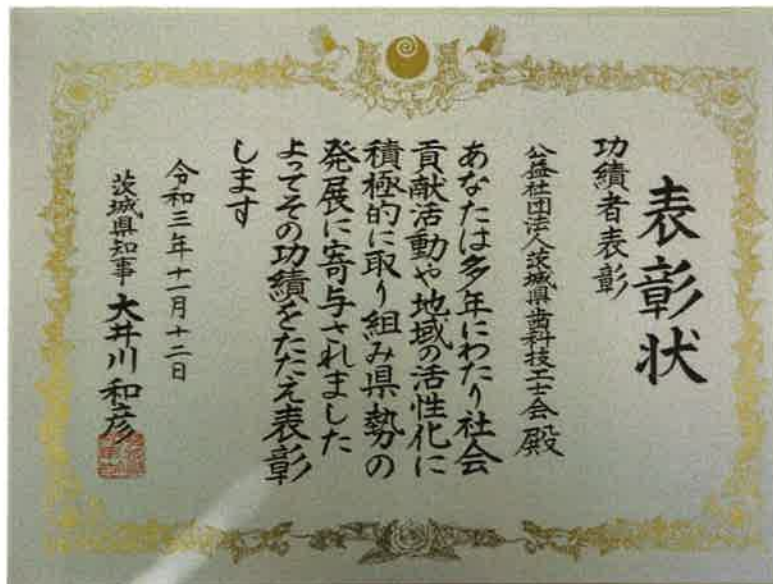 表彰状
功績者表彰
公益社団法人茨城県歯科技工士会 殿
あなたは多年にわたり社会
貢献活動や地域の活性化に
積極的に取り組み県勢の
発展に寄与されました
よってその功績をたたえ表彰
します
令和三年十一月十二日
茨城県知事 大井川和彦